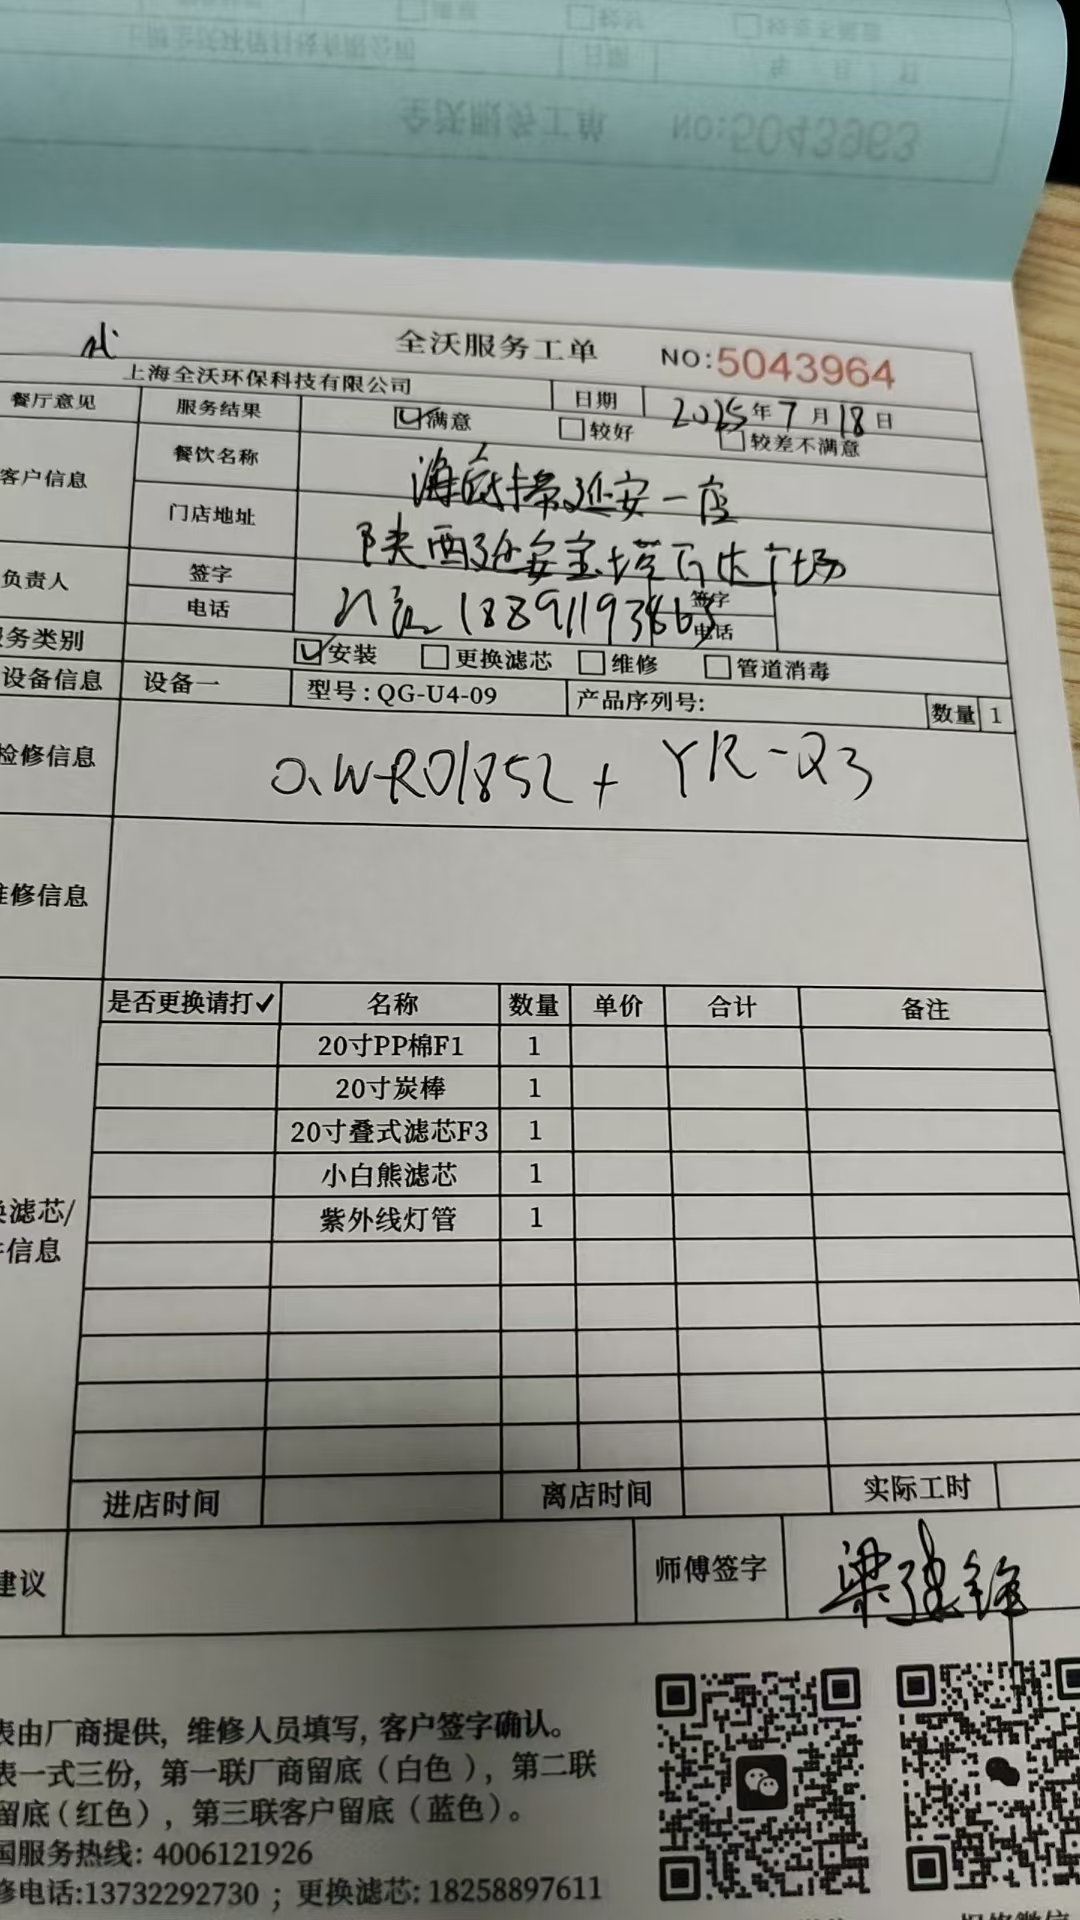 全沃服务工单 NO:5043963
全沃服务工单 NO:5043964
上海全沃环保科技有限公司 日期 2025年7月18日
餐厅意见 服务结果 满意 较好 较差不满意
客户信息 餐饮名称 海底捞延安一店
门店地址 陕西延安宝塔万达广场
负责人 签字 签字
电话 18891193863 电话
务类别 安装 更换滤芯 维修 管道消毒
设备信息 设备一 型号：QG-U4-09 产品序列号: 数量 1
检修信息 QWR01852 + YR-Q3
修信息
是否更换请打✓ 名称 数量 单价 合计 备注
20寸PP棉F1 1
20寸炭棒 1
20寸叠式滤芯F3 1
小白熊滤芯 1
紫外线灯管 1
换滤芯/
信息
进店时间 离店时间 实际工时
建议 师傅签字 梁建锋
表由厂商提供，维修人员填写，客户签字确认。
表一式三份，第一联厂商留底（白色），第二联
留底（红色），第三联客户留底（蓝色）。
国服务热线: 4006121926
修电话:13732292730 ；更换滤芯: 18258897611